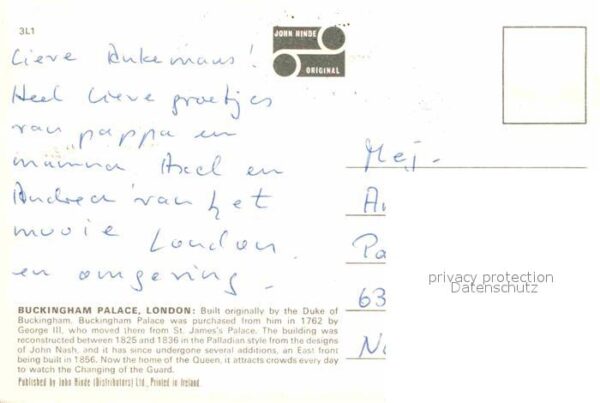 3L1
JOHN HINDE
ORIGINAL
Lieve Ankemaus!
Heel lieve groetjes
van pappa en
mamma Axel en
Andrea van het
mooie London
en omgeving.
Mej.
A
Pa
63
N
privacy protection
Datenschutz
BUCKINGHAM PALACE, LONDON: Built originally by the Duke of
Buckingham. Buckingham Palace was purchased from him in 1762 by
George III, who moved there from St. James's Palace. The building was
reconstructed between 1825 and 1836 in the Palladian style from the designs
of John Nash, and it has since undergone several additions, an East front
being built in 1856. Now the home of the Queen, it attracts crowds every day
to watch the Changing of the Guard.
Published by John Hinde (Distributors) Ltd., Printed in Ireland.